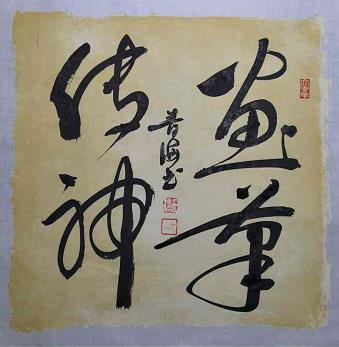 画笔
传神
青海书